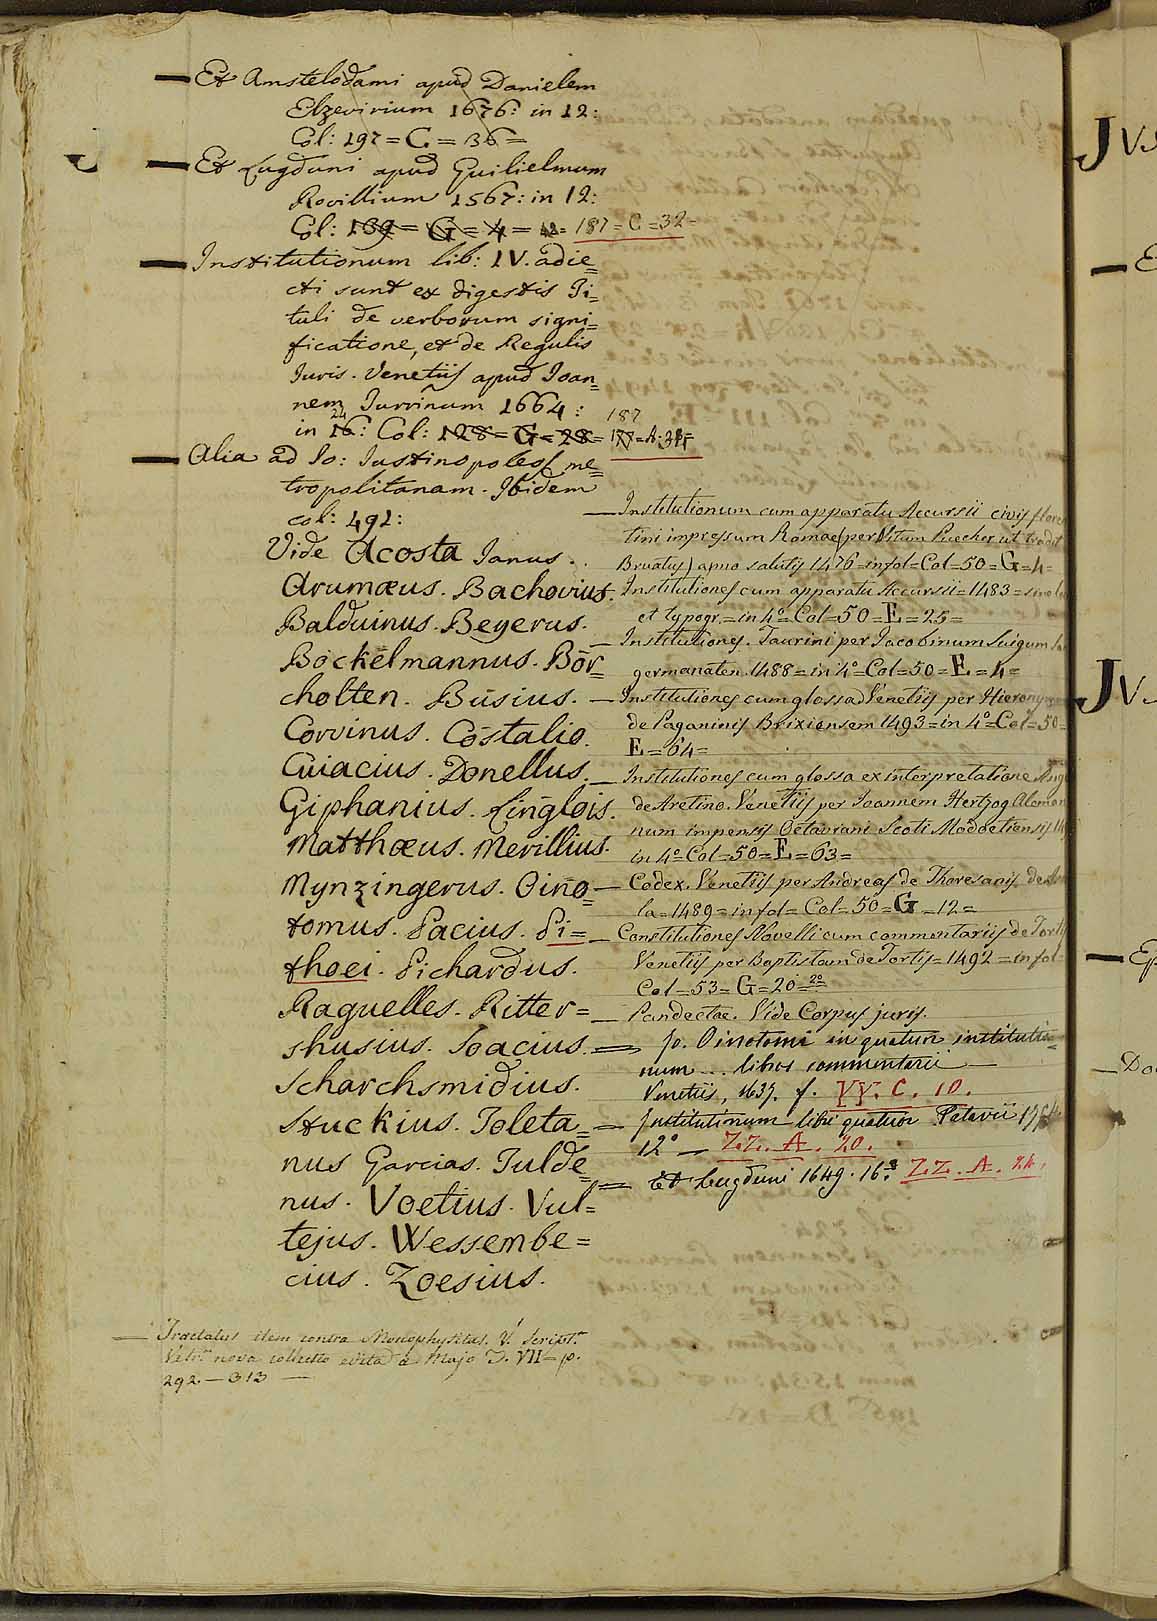 — Et Amstelodami apud Danielem
Elzevirium 1676: in 12:
Col: 197 = C = 36 =
— Et Lugduni apud Guilielmum
Rovillium 1567: in 12:
Col: 139 = G = 4 = 12 = 187 = C = 32 =
— Institutionum lib: IV. adie=
cti sunt ex digestis Ti=
tuli de verborum signi=
ficatione, et de Regulis
Iuris. Venetiis apud Ioan=
nem Iurrinum 1664:
24 187
in 16: Col: 128 = G = 28 = 177 = A:
— Alia ad Io: Iustinopoles me=
tropolitanam. Ibidem
col: 491:
Vide Acosta Ianus.
Arumæus. Bachovius.
Balduinus. Beyerus.
Böckelmannus. Bor=
cholten. Busius.
Corvinus. Costalio.
Cuiacius. Donellus.
Giphanius. Linglois.
Matthæus. Merillius.
Mynzingerus. Oino=
tomus. Pacius. Pi=
thoei. Pichardus.
Raguelles. Ritter=
shusius. Soacius.
Scharchsmidius.
Stuckius. Toleta=
nus Garcias. Tulde=
nus. Voetius. Vul=
tejus. Wessembe=
cius. Zoesius.
— Tractatus item contra Monophysitas. V. Script.
Vet. nova collectio edita a Majo T. VII = p.
292. — 313 —
— Institutionum cum apparatu Accursii civis
tini impressum Romae (per Vitum Puecher ut
Bruatus) anno salutis 1476 = in fol = Col = 50 = G = 4 =
Institutiones cum apparatu Accursii = 1483 =
et typogr. = in 4º = Col = 50 = E = 25 =
— Institutiones. Taurini per Iacobinum Suigum
germanaten. 1488 = in 4º = Col = 50 = E = 4 =
— Institutiones cum glossa Venetiis per
de Paganinis Brixiensem 1493 = in 4º = Col = 50 =
E = 64 =
— Institutiones cum glossa ex interpretatione
de Aretino. Venetiis per Ioannem Hertzog
num impensis Octaviani Scoti Modoetiensis
in 4º = Col = 50 = E = 63 =
— Codex. Venetiis per Andreas de Thoresanis de
la = 1489 = in fol = Col = 50 = G = 12 =
— Constitutiones Novelli cum commentariis de
Venetiis per Baptistam de Tortis = 1492 = in fol =
Col = 53 = G = 20 = 20
— Pandectae. Vide Corpus juris.
= Jo. Oinotomi in quatuor institutio=
num ... libros commentarii —
Venetiis, 1637. f. YY. C. 10.
= Institutionum libri quatuor Patavii
12º — ZZ. A. 20.
= Et Lugduni 1649. 16º. ZZ. A. 24.
J
— E
J